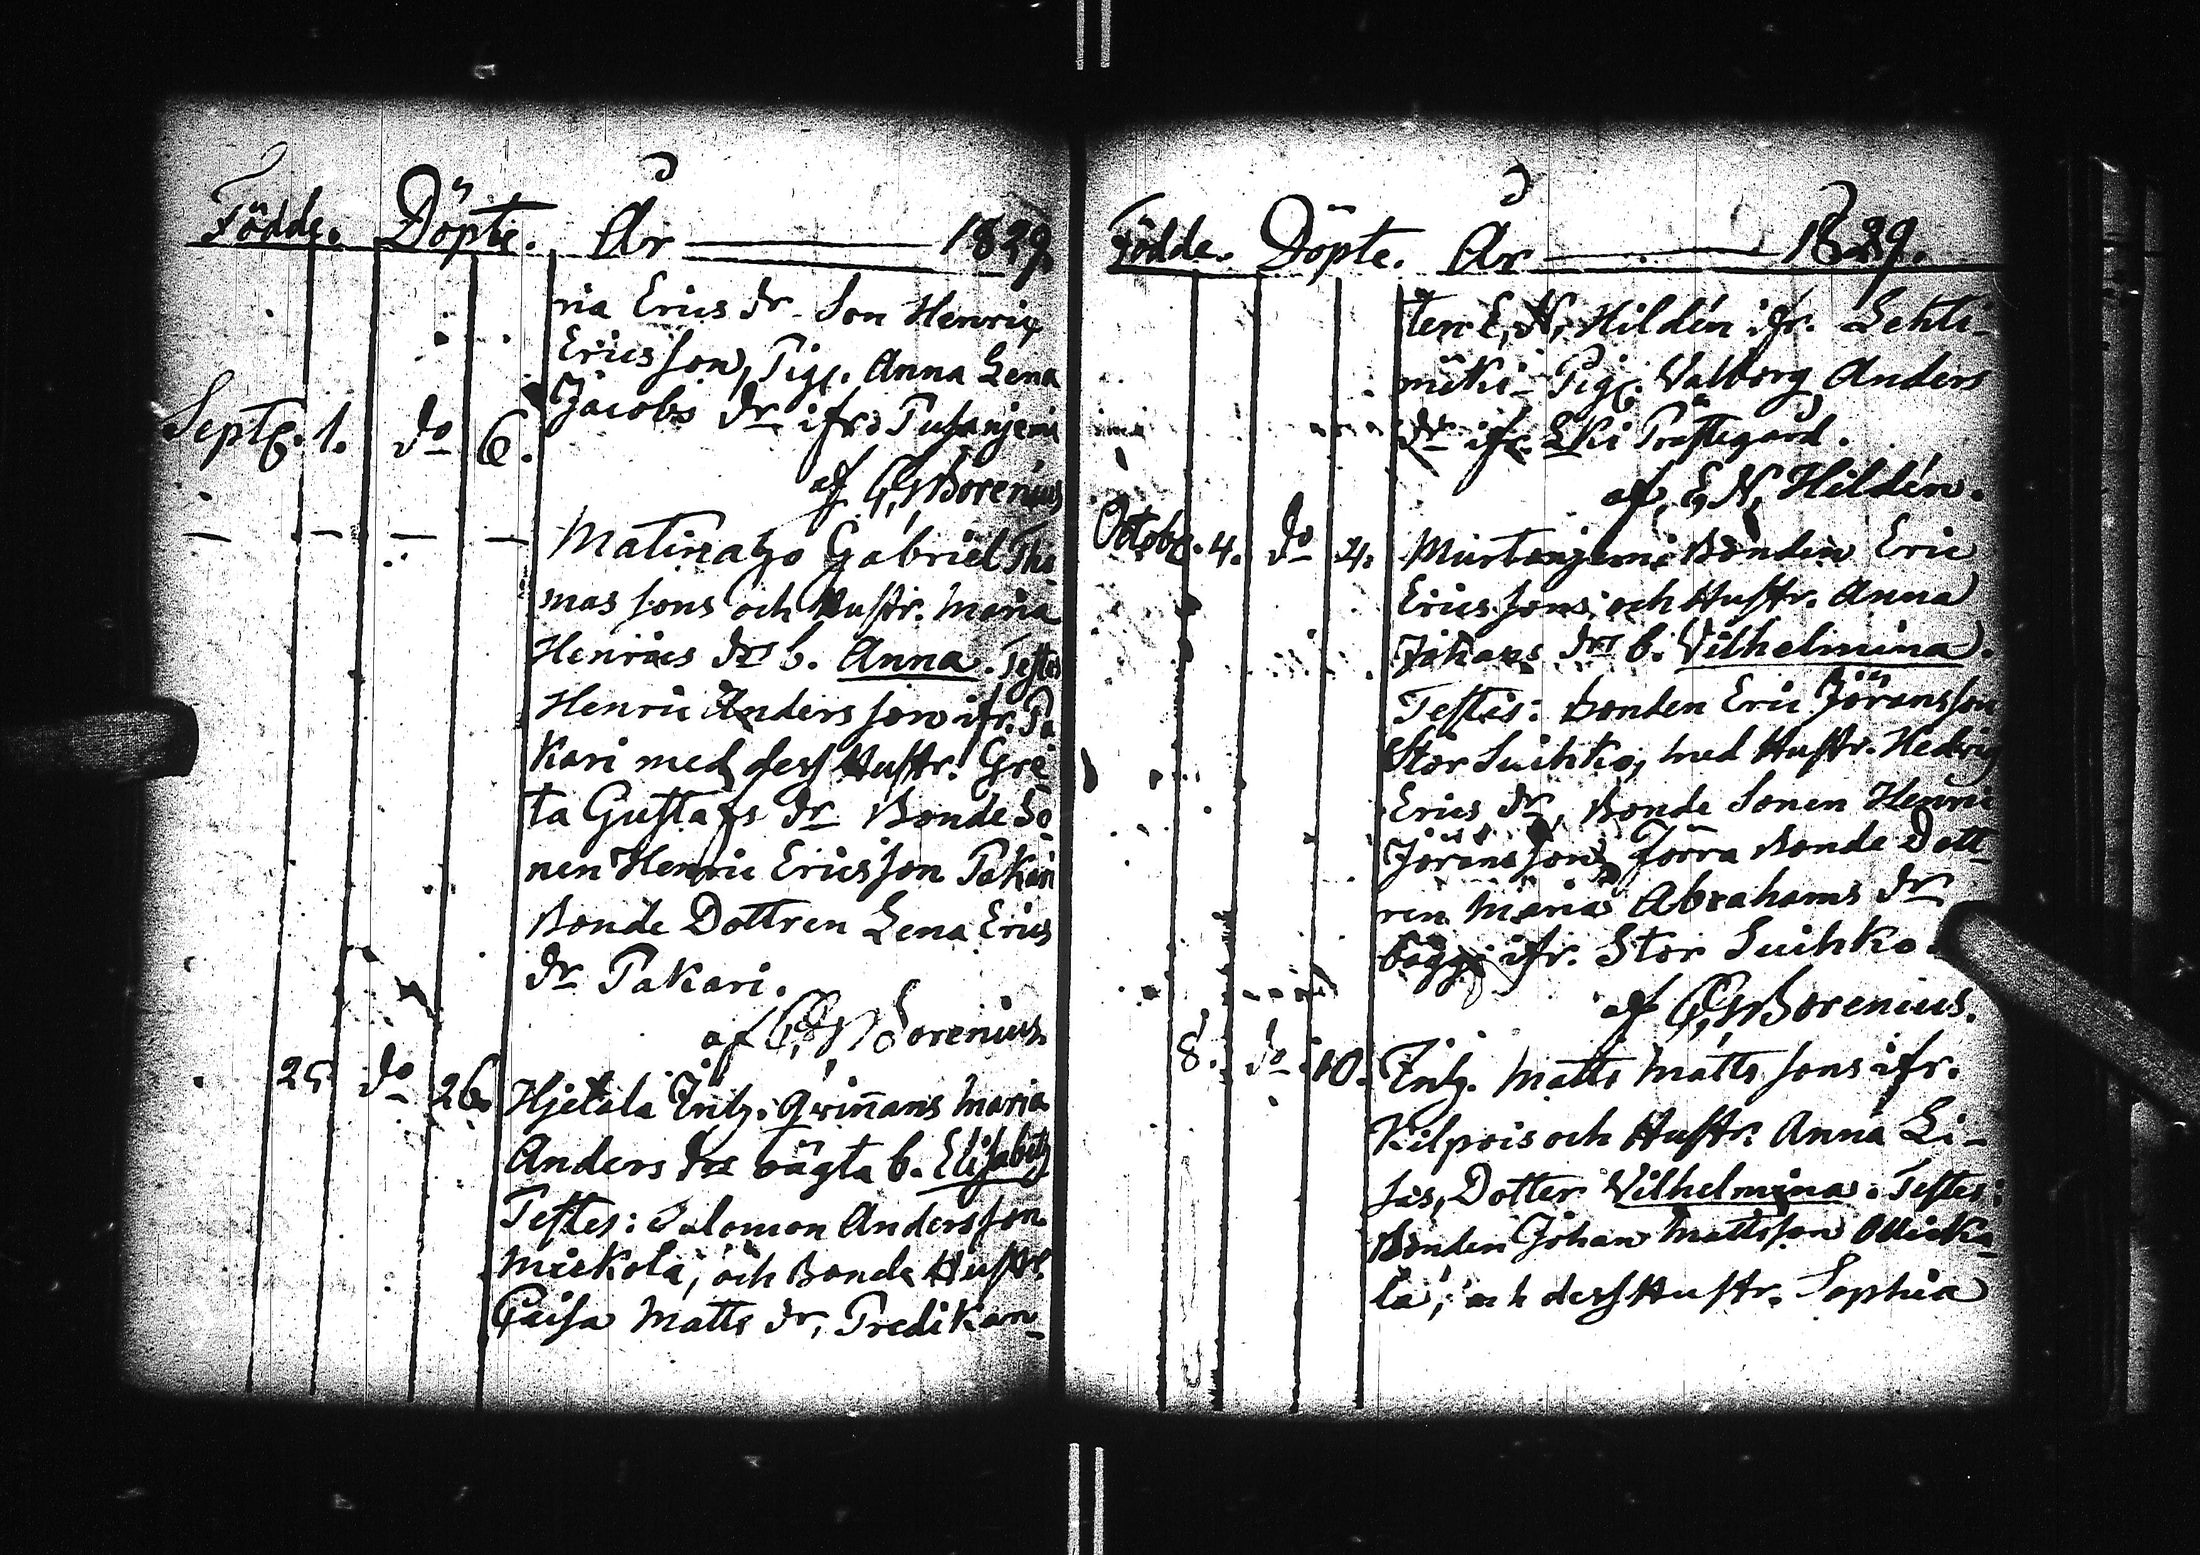 Födde. Döpte. År 1829.
ria Erics dr. Son Henric
Ericsson, Pig. Anna Lena
Jacobs dr ifr. Pusanjemi
Septb. 1. do 6.
af C, G, Borenius
Matinaho Gabriel Tho
mas sons och Hustr. Maria
Henrics drs b. Anna. Testes
Henric Andersson ifr. Pa
kari med dess Hustr. Gre
ta Gustafs dr Bonde So
nen Henric Ericsson Pakari
Bonde Dottren Lena Erics
dr Pakari.
af C, G, Borenius.
25. do 26. Hjetala Inh. qvinnans Maria
Anders drs oägta b. Elisabeth
Testes: Salomon Andersson
Mickola, och Bonde Hustr.
Caisa Matts dr, Predikan-
Födde. Döpte. År 1829.
ten E, N, Hildén ifr. Lehti-
mäki Pig. Valborg Anders
dr ifr. Lki Prästegård.
af, E, N, Hildén.
Octobr. 4. do 4. Murtonjemi Bonden Eric
Ericssons och Hustr. Anna
Johans drs b. Vilhelmina.
Testis: Bonden Eric Jöransson
Stor Suihko, med Hustr. Hedvig
Erics dr, Bonde Sonen Henric
Jöransson, förra Bonde Dott-
ren Maria Abrahams dr
bägge ifr. Stor Suihko.
af C, G, Borenius.
8. do 10. Inh. Matts Matts sons ifr.
Kilpois och Hustr. Anna Li-
sas, Dotter Vilhelmina. Testes:
Bonden Johan Mattsson Ollicka-
la, och dess Hustr. Sophia